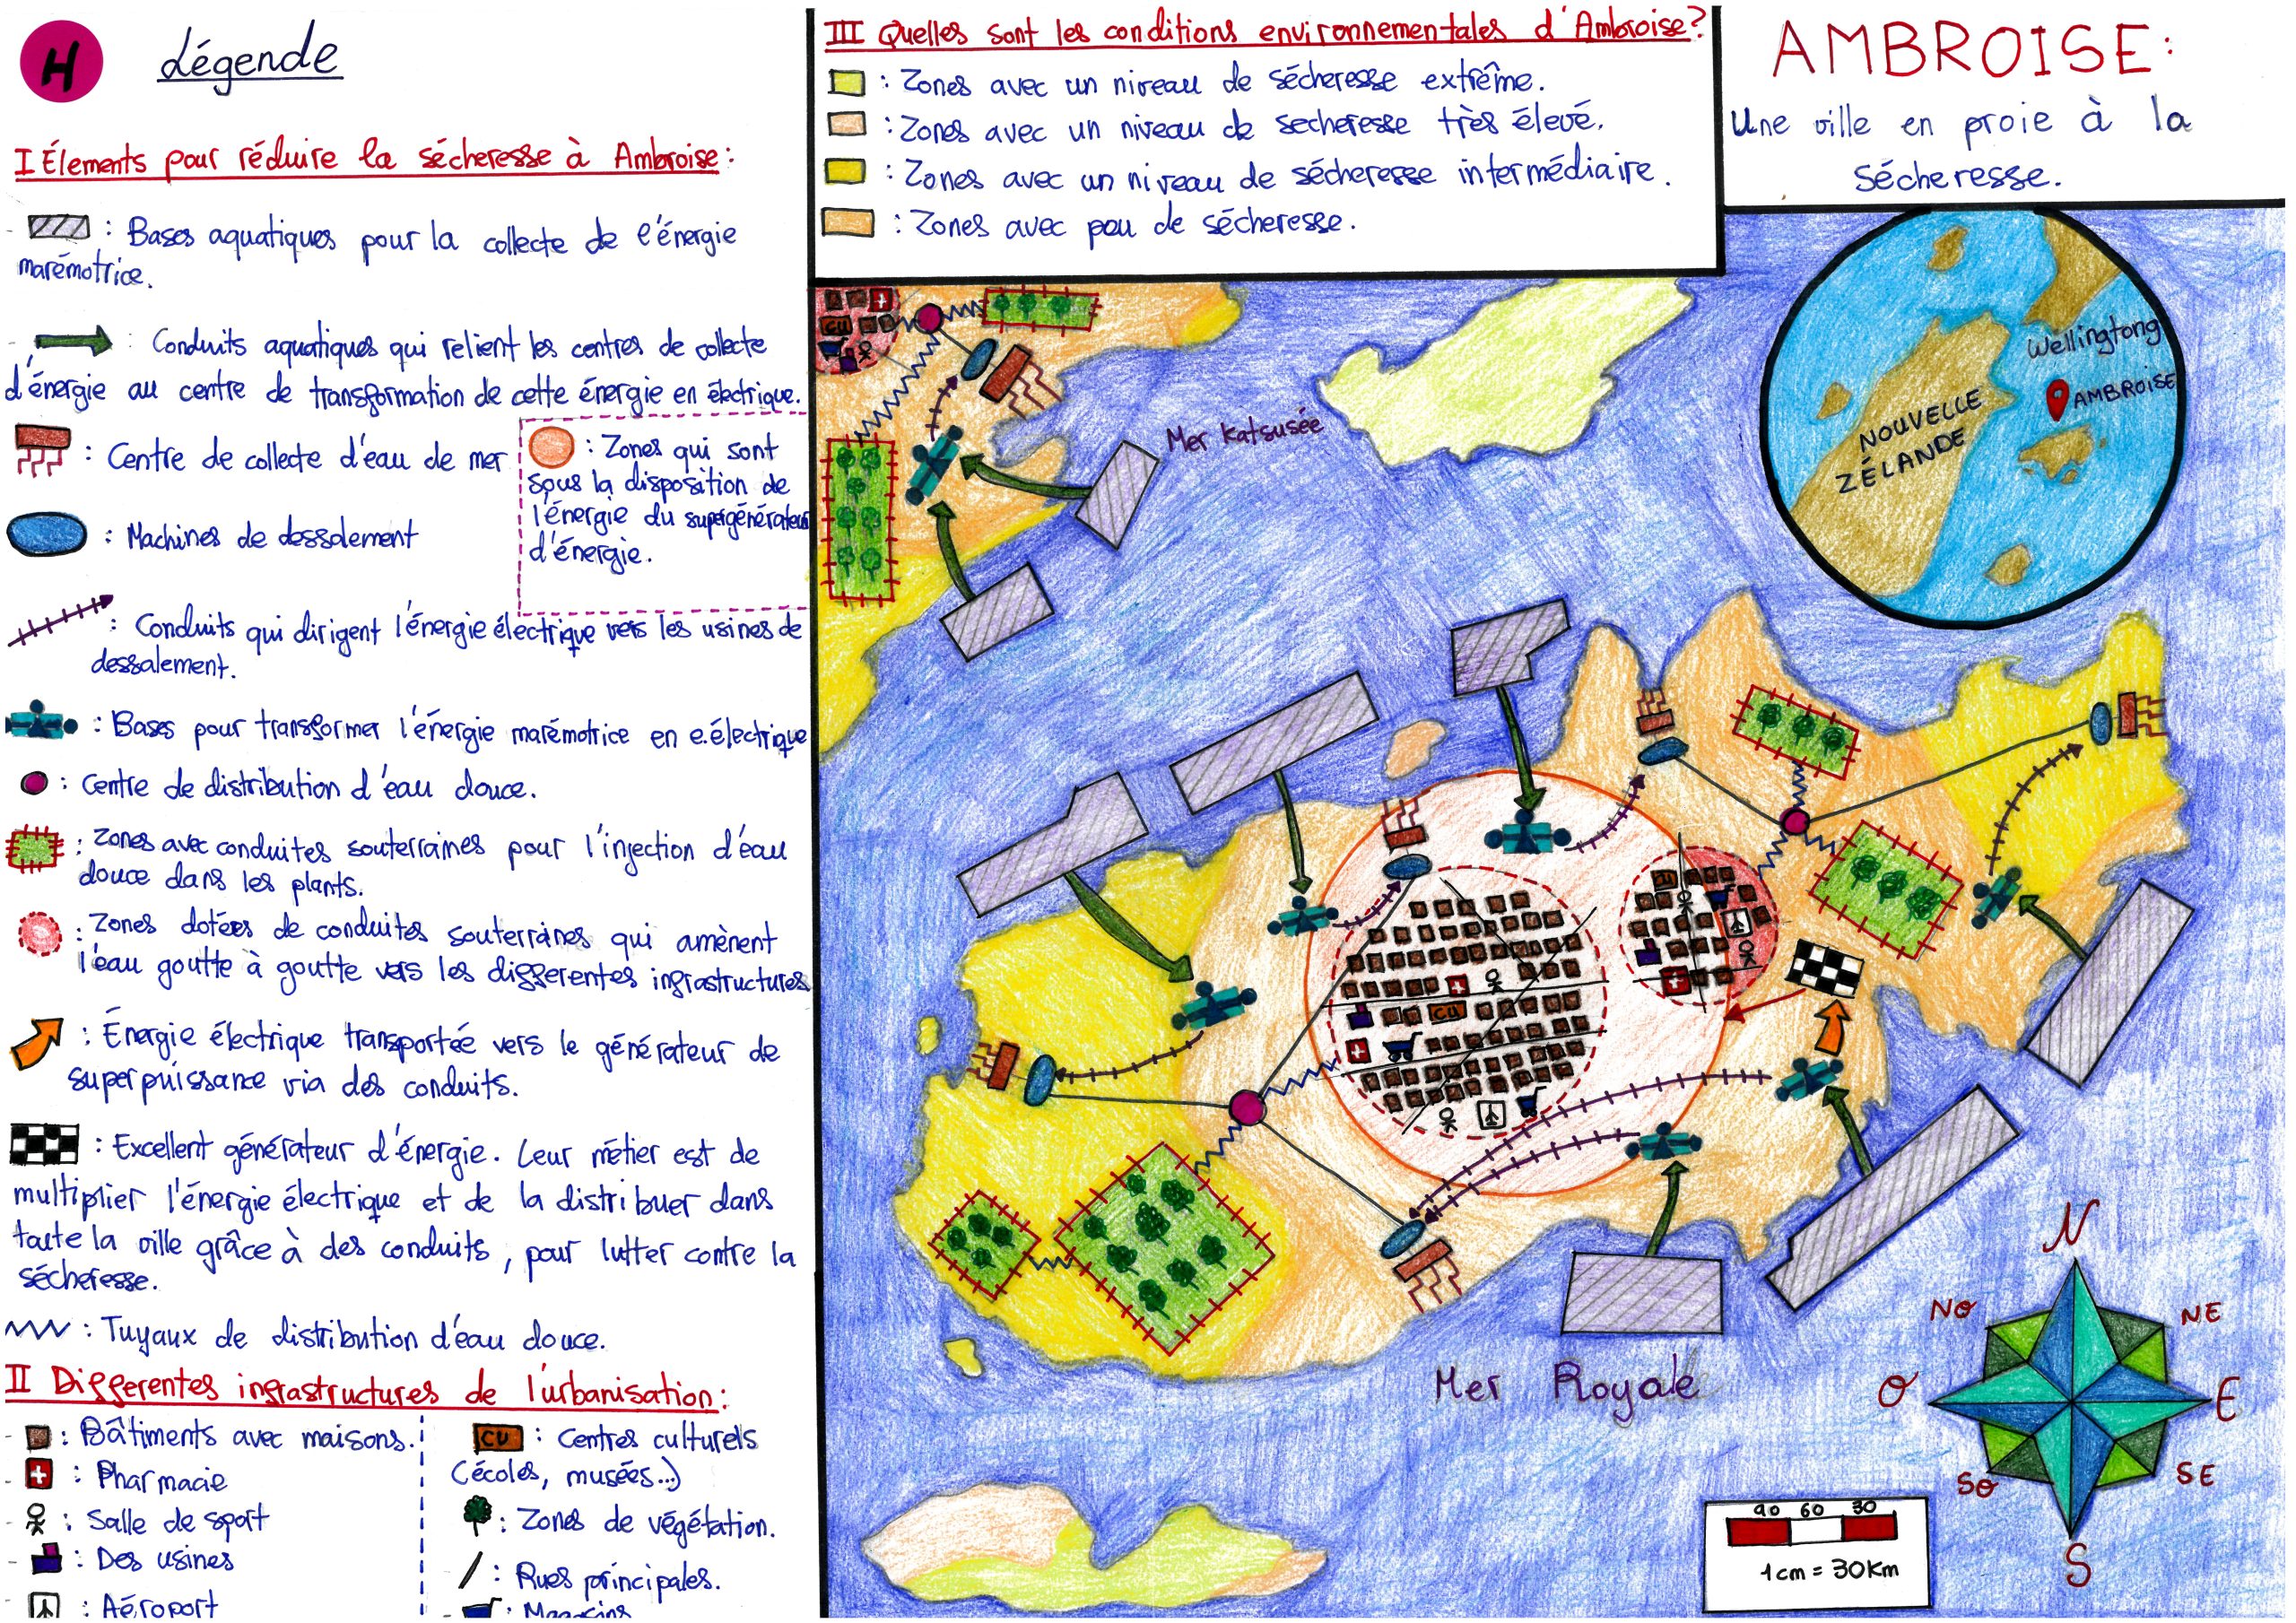 H
Légende
I Élements pour réduire la sécheresse à Ambroise:
: Bases aquatiques pour la collecte de l'énergie
marémotrice.
: Conduits aquatiques qui relient les centres de collecte
d'énergie au centre de transformation de cette énergie en électrique.
: Centre de collecte d'eau de mer
: Zones qui sont
sous la disposition de
l'énergie du supergénérateur
d'énergie.
: Machines de dessalement
: Conduits qui dirigent l'énergie électrique vers les usines de
dessalement.
: Bases pour transformer l'énergie marémotrice en e.électrique
: Centre de distribution d'eau douce.
: Zones avec conduites souterraines pour l'injection d'éau
douce dans les plants.
: Zones dotées de conduites souterraines qui amènent
l'eau goutte à goutte vers les differentes infrastructures
: Énergie électrique transportée vers le générateur de
superpuissance via des conduits.
: Excellent générateur d'énergie. Leur métier est de
multiplier l'énergie électrique et de la distribuer dans
toute la ville grâce à des conduits, pour lutter contre la
sécheresse.
: Tuyaux de distribution d'éau douce.
II Differentes infrastructures de l'urbanisation:
: Bâtiments avec maisons.
: Pharmacie
: Salle de sport
: Des usines
: Aéroport
CU : Centres culturels
(écoles, musées...)
: Zones de végétation.
: Rues principales.
: Magasins
III Quelles sont les conditions environnementales d'Ambroise?
: Zones avec un niveau de sécheresse extrême.
: Zones avec un niveau de secheresse très élevé.
: Zones avec un niveau de sécheresse intermédiaire.
: Zones avec peu de sécheresse.
AMBROISE:
Une ville en proie à la
sécheresse.
Wellingtong
AMBROISE
NOUVELLE
ZÉLANDE
CU
Mer Katsusée
CU
CU
Mer Royale
N
NO
NE
O
E
SO
SE
S
90 60 30
1cm = 30Km